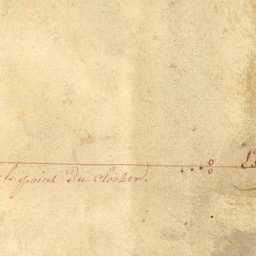 le point du clocher.